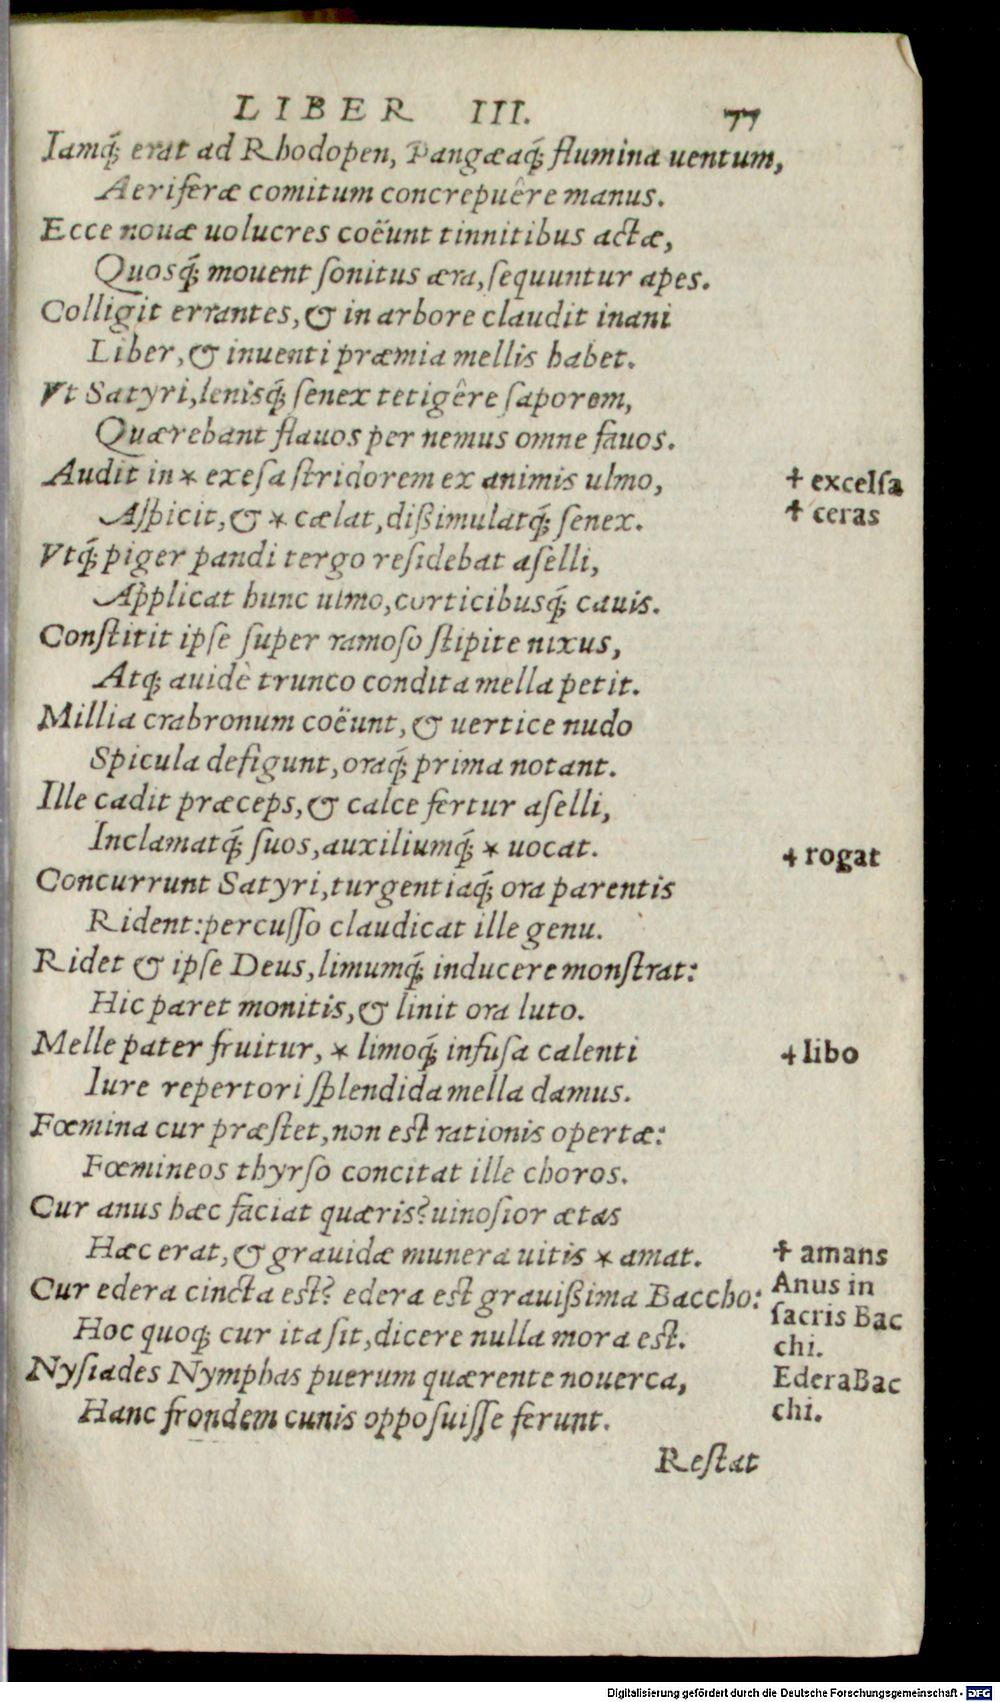 LIBER III. 77
Iamq́; erat ad Rhodopen, Pangæaq́; flumina uentum,
Aeriferæ comitum concrepuêre manus.
Ecce nouæ uolucres coëunt tinnitibus actæ,
Quosq́; mouent ſonitus æra, ſequuntur apes.
Colligit errantes, & in arbore claudit inani
Liber, & inuenti præmia mellis habet.
Vt Satyri, lenisq́; ſenex tetigêre ſaporem,
Quærebant flauos per nemus omne fauos.
Audit in * exeſa ſtridorem ex animis ulmo,
Aſpicit, & * cælat, dißimulatq́; ſenex.
Vtq́; piger pandi tergo reſidebat aſelli,
Applicat hunc ulmo, corticibusq́; cauis.
Conſtitit ipſe ſuper ramoſo ſtipite nixus,
Atq; auidè trunco condita mella petit.
Millia crabronum coëunt, & uertice nudo
Spicula defigunt, oraq́; prima notant.
Ille cadit præceps, & calce fertur aſelli,
Inclamatq́; ſuos, auxiliumq́; * uocat.
Concurrunt Satyri, turgentiaq́; ora parentis
Rident: percuſſo claudicat ille genu.
Ridet & ipſe Deus, limumq́; inducere monſtrat:
Hic paret monitis, & linit ora luto.
Melle pater fruitur, * limoq́; infuſa calenti
Iure repertori ſplendida mella damus.
Fœmina cur præſtet, non est rationis opertæ:
Fœmineos thyrſo concitat ille choros.
Cur anus hæc faciat quæris? uinoſior ætas
Hæc erat, & grauidæ munera uitis * amat.
Cur edera cincta est? edera est grauißima Baccho:
Hoc quoq; cur ita ſit, dicere nulla mora est.
Nyſiades Nymphas puerum quærente nouerca,
Hanc frondem cunis oppoſuiſſe ferunt.
Restat
✝ excelſa
✝ ceras
✝ rogat
✝ libo
✝ amans
Anus in
ſacris Bac
chi.
Edera Bac
chi.
Digitalisierung gefördert durch die Deutsche Forschungsgemeinschaft - DFG